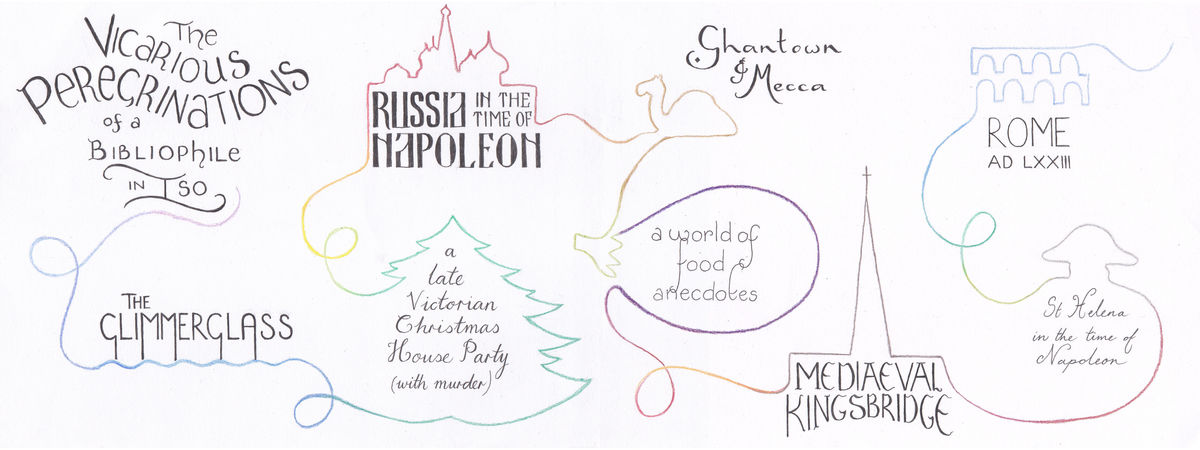 The
Vicarious
Peregrinations
of a
Bibliophile
in Iso
The
Glimmerglass
Russia in the
time of
Napoleon
a
late
Victorian
Christmas
House Party
(with murder)
Ghantown
& Mecca
a world of
food &
anecdotes
Mediaeval
Kingsbridge
Rome
AD LXXIII
St Helena
in the time of
Napoleon